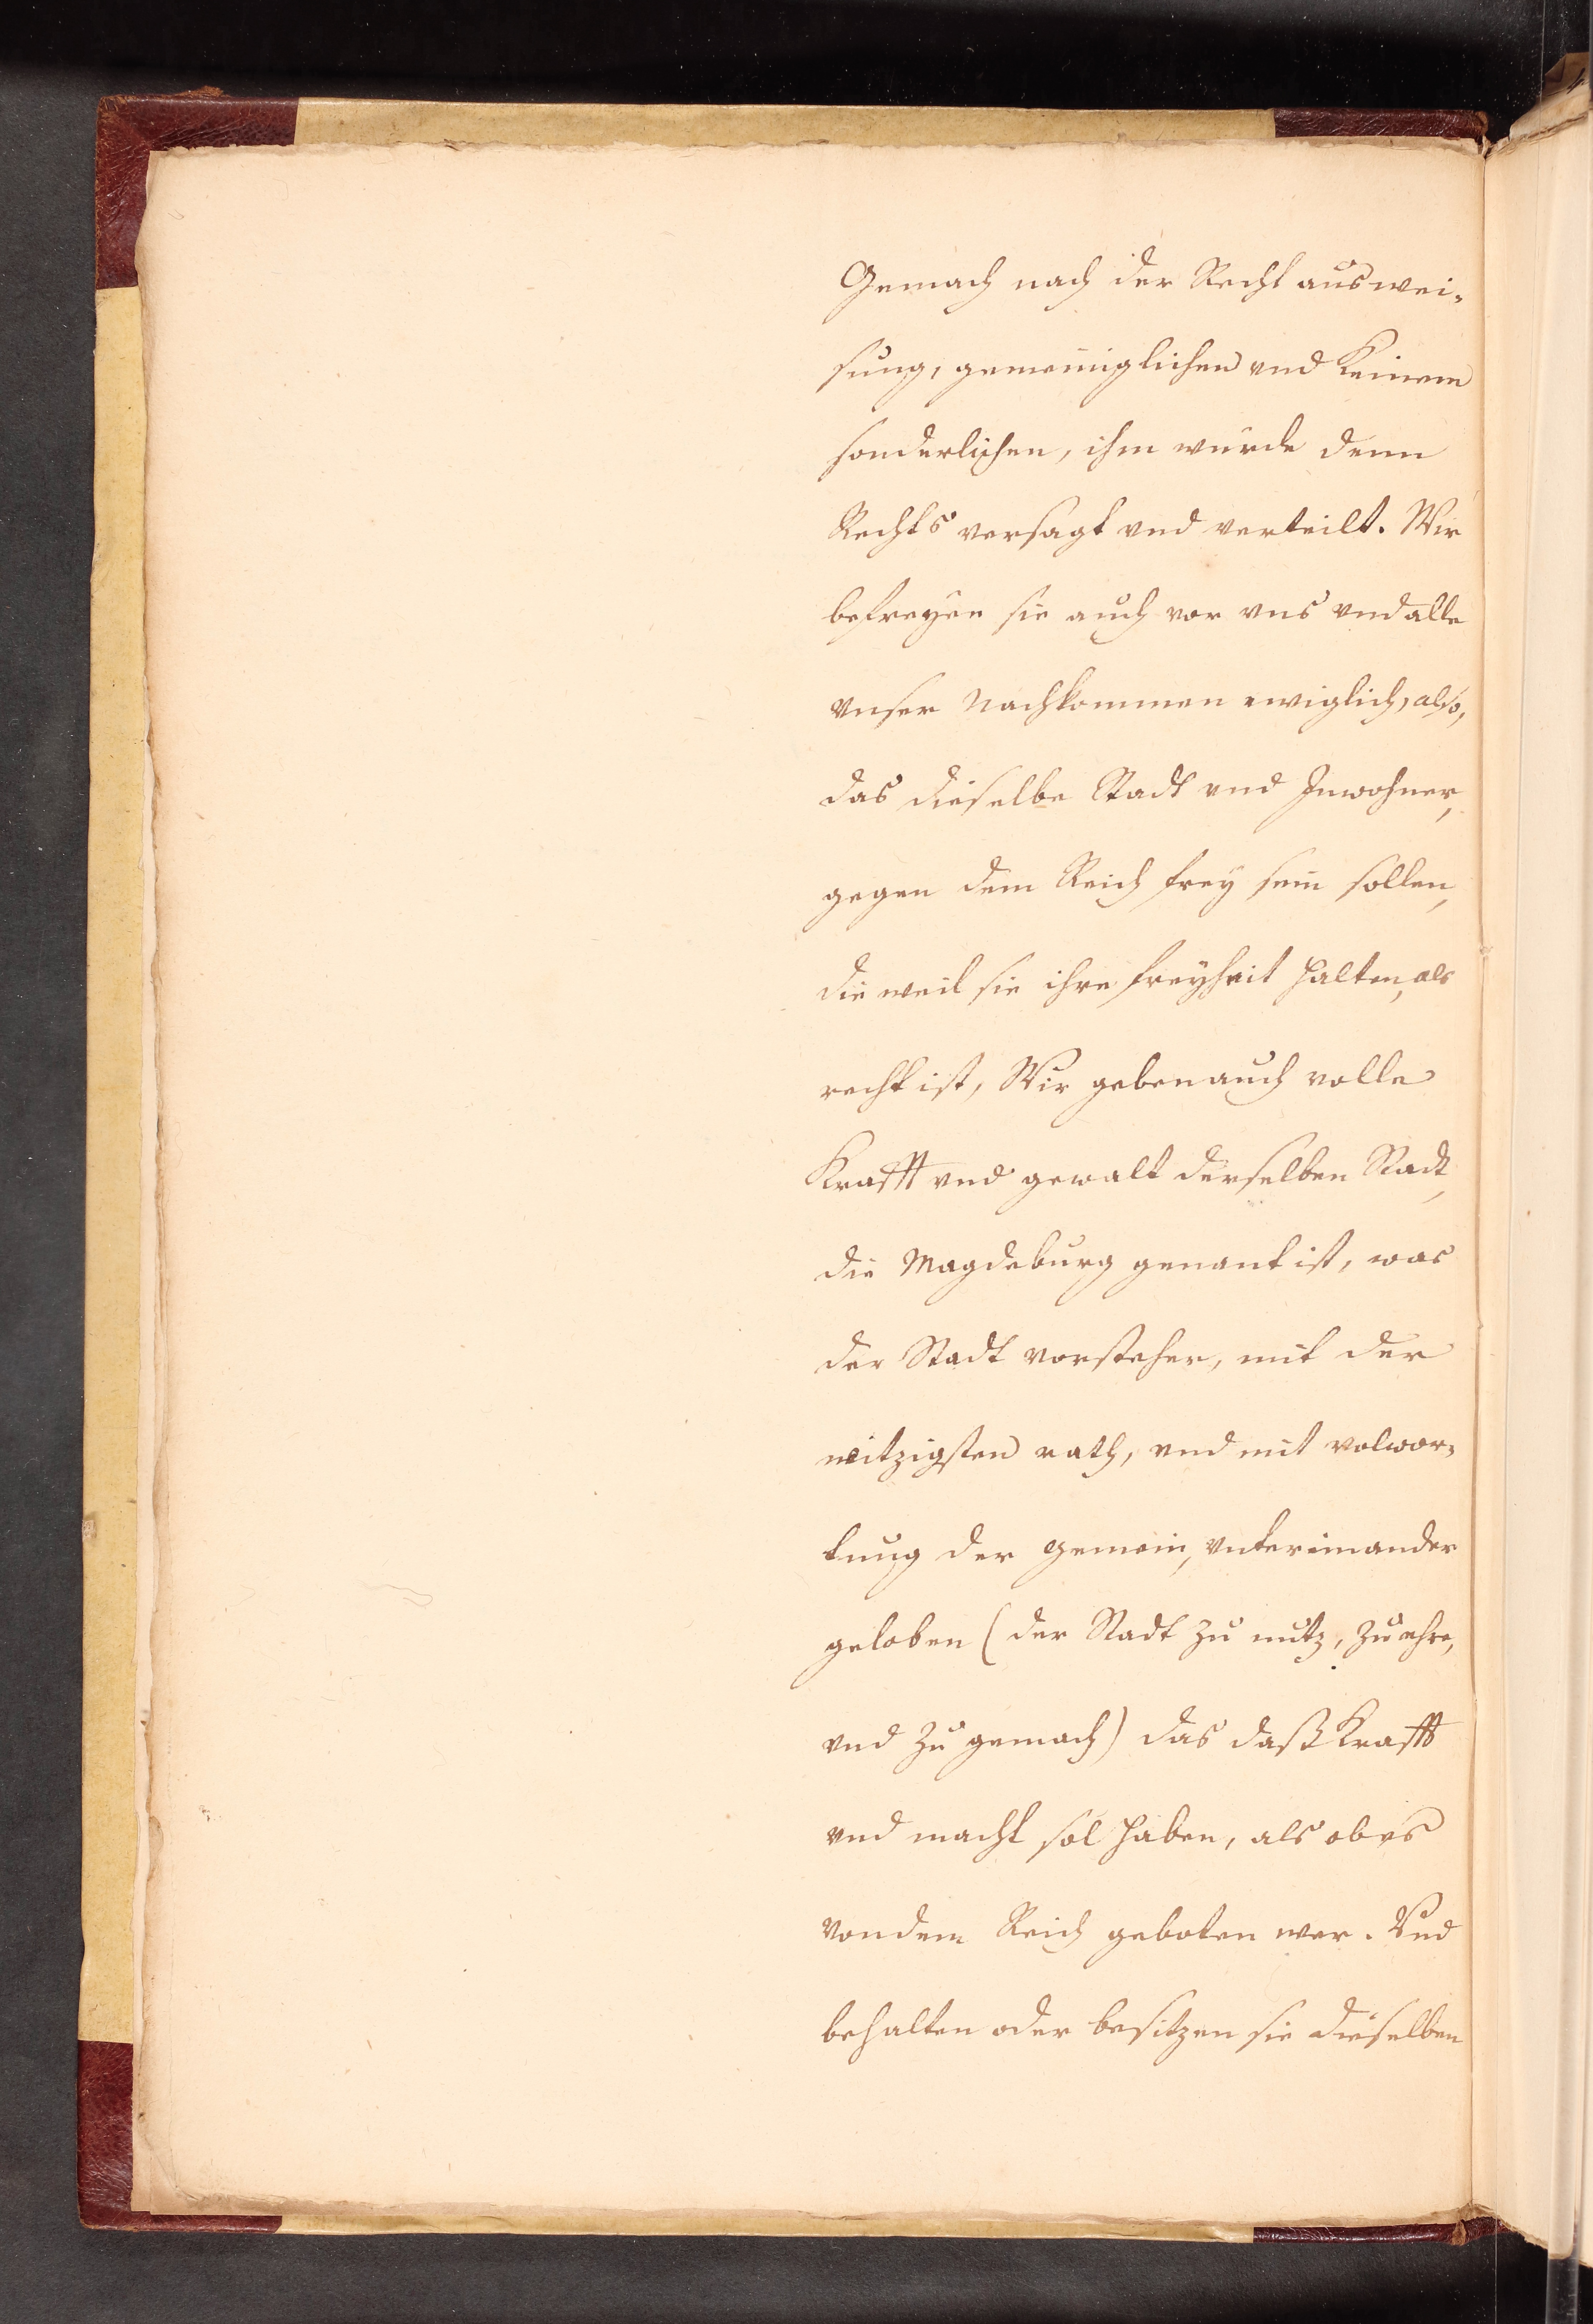 Gemach nach der Recht auswei-
sung, gemeiniglichen vnd Keinem
sonderlichen, ihm wurde denn
Rechts versagt vnd verteilt. Wir
befreyen sie auch vor vns vnd alle
vnser Nachkommen ewiglich, also,
das dieselbe Stadt vnd Inwohner,
gegen dem Reich frey sein sollen,
die weil sie ihre freyheit halten, als
recht ist, Wir geben auch volle
Krafft vnd gewalt derselben Stadt,
die Magdeburg genant ist, was
der Stadt vorsteher, mit der
witzigsten rath, vnd mit volwor-
tung der gemein, vntereinander
geloben (der Stadt zu nutz, zu ehre,
vnd zu gemach) das daß Krafft
vnd macht sol haben, als ob es
von dem Reich geboten wer. Vnd
behalten oder besitzen sie dieselben